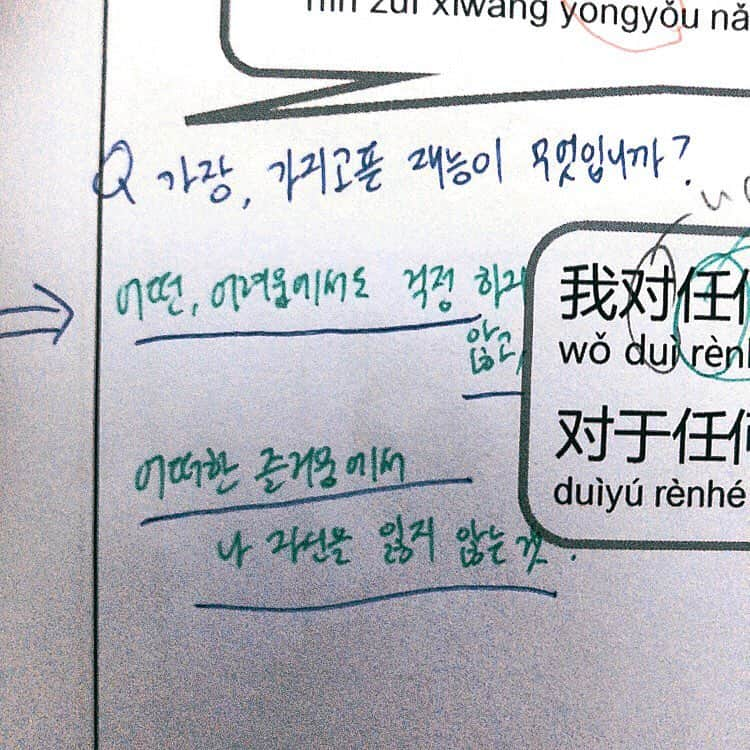 nín zuì xīwàng yōngyǒu nǎ
Q 가장, 가지고픈 재능이 무엇입니까?
어떤, 어려움에서도 걱정 하지
않고,
我对任
wǒ duì rèn
对于任何
duìyú rènhé
어떠한 즐거움에서
나 자신을 잃지 않는 것.